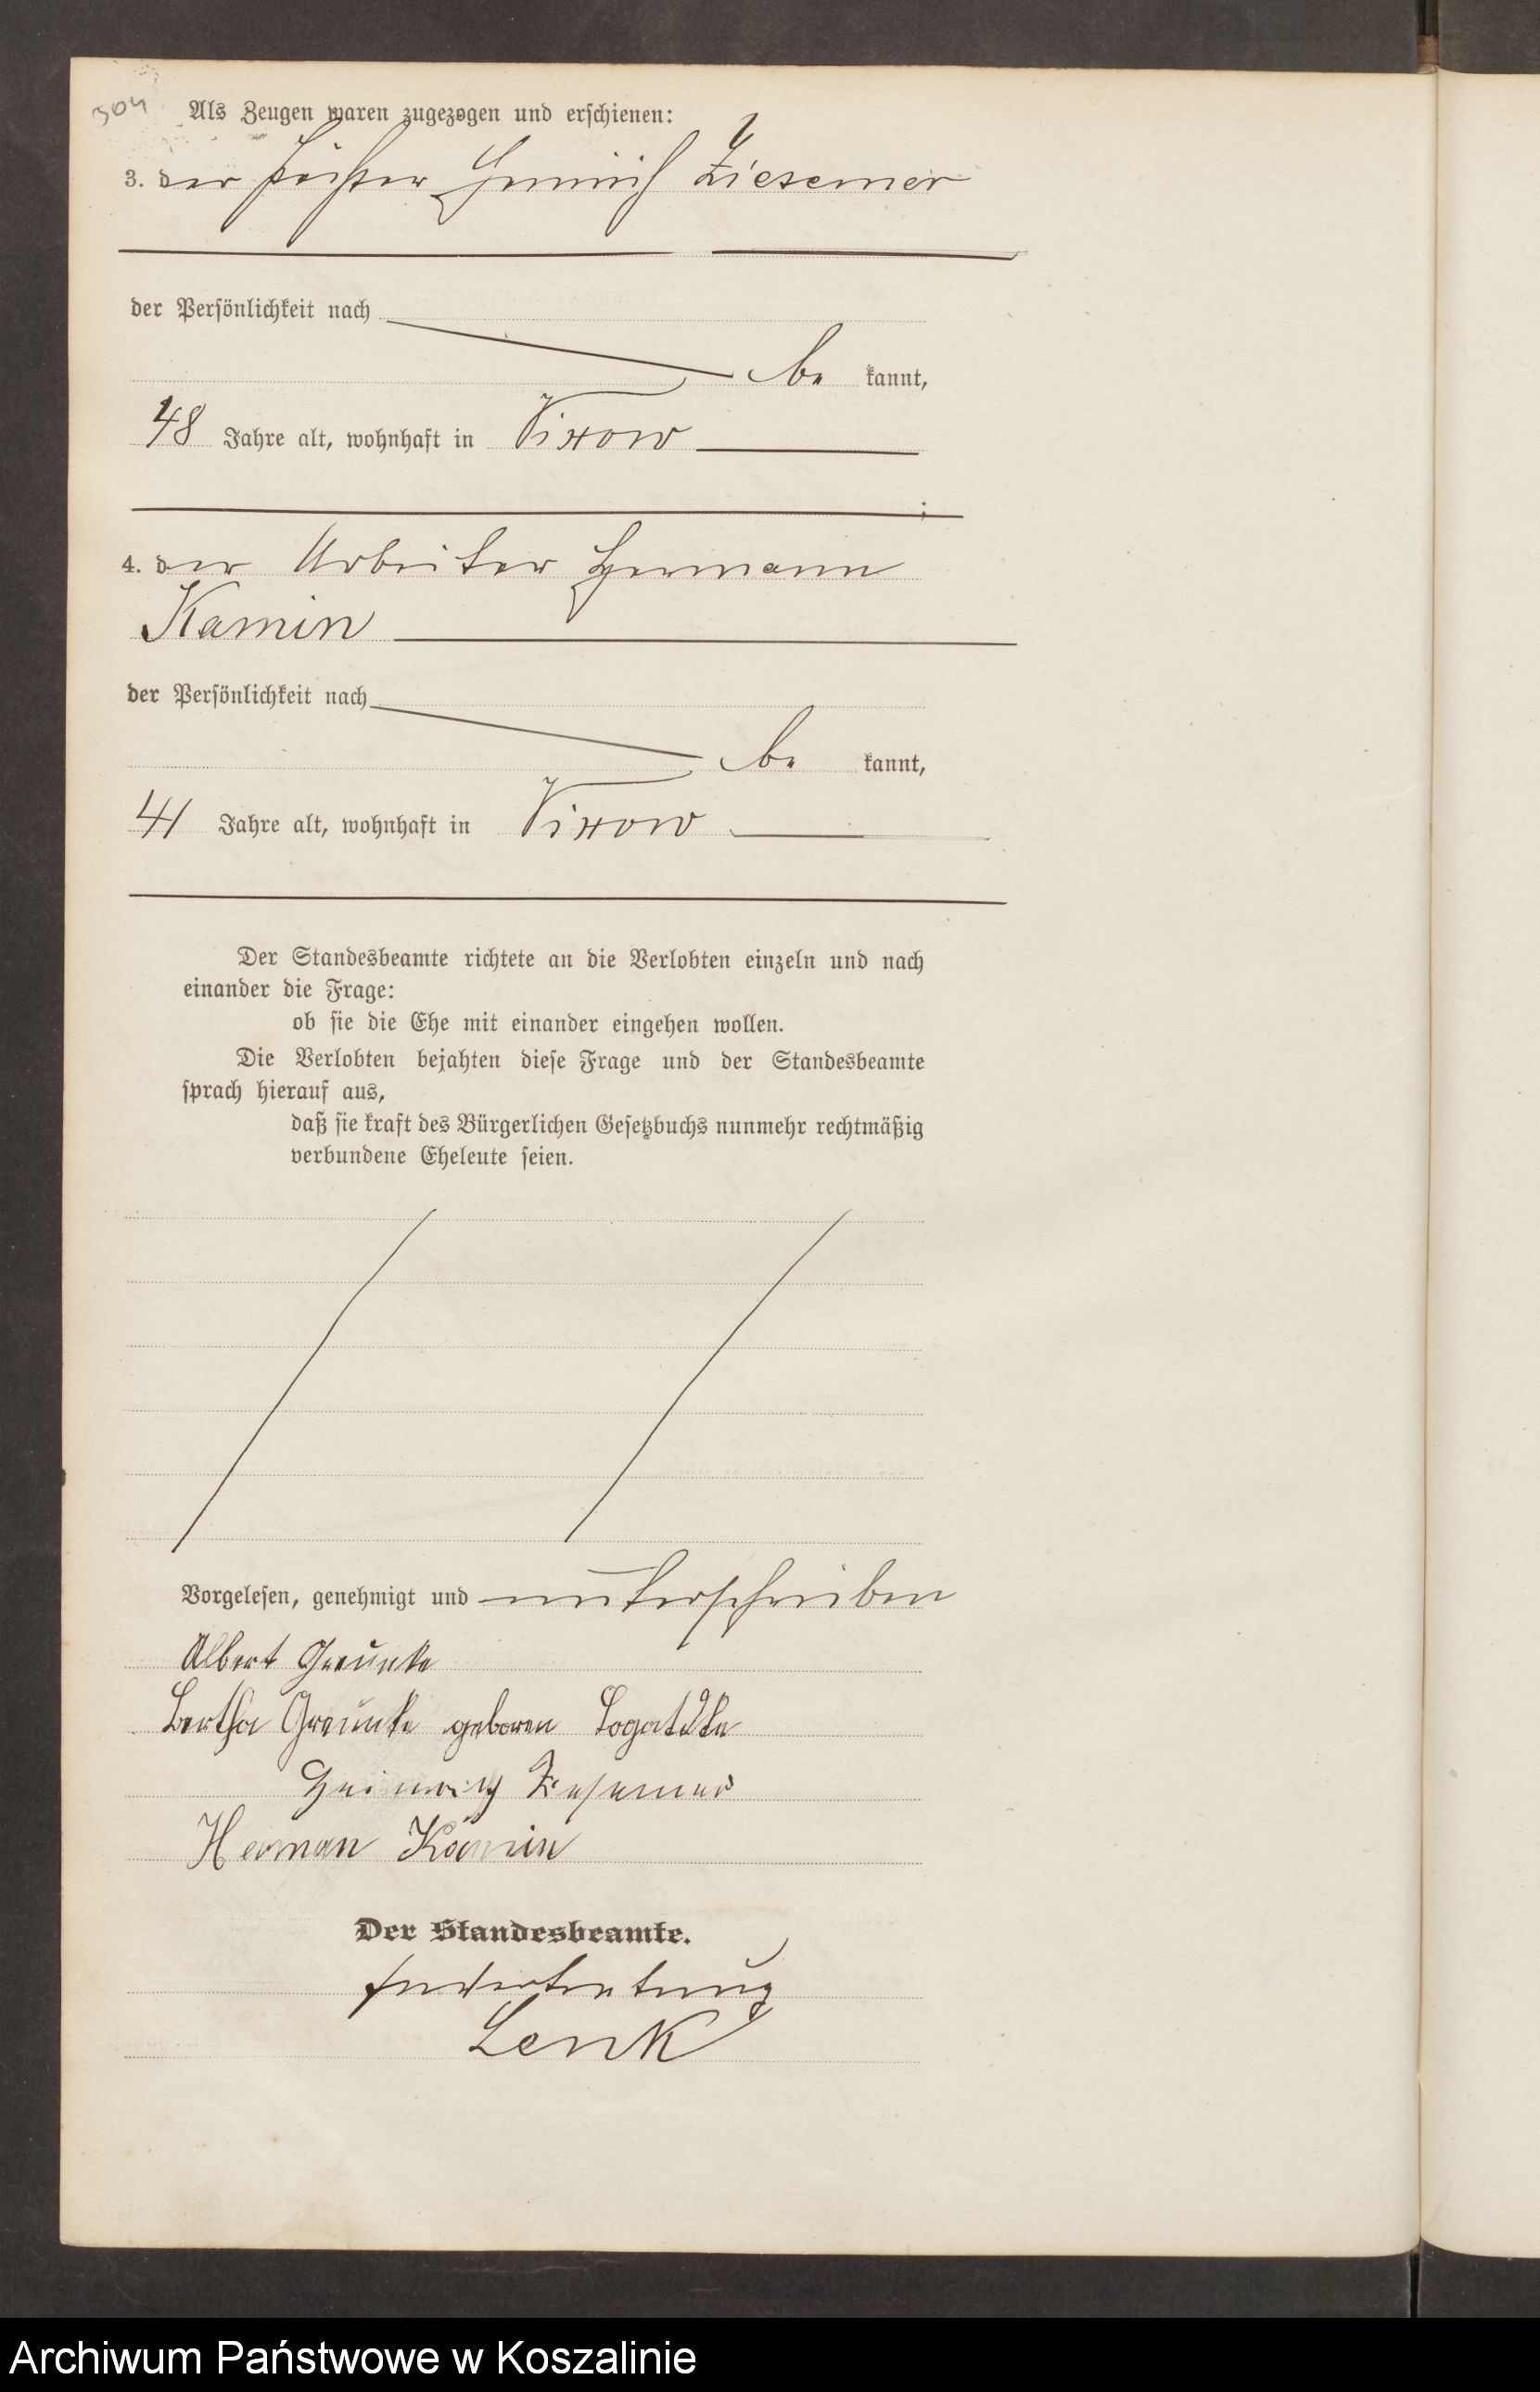 304 Als Zeugen waren zugezogen und erschienen:
3. der Förster Heinrich Ziesemer
der Persönlichkeit nach
be kannt,
48 Jahre alt, wohnhaft in Vixow
;
4. der Arbeiter Hermann
Kamin
der Persönlichkeit nach
be kannt,
41 Jahre alt, wohnhaft in Vixow
Der Standesbeamte richtete an die Verlobten einzeln und nach
einander die Frage:
ob sie die Ehe mit einander eingehen wollen.
Die Verlobten bejahten diese Frage und der Standesbeamte
sprach hierauf aus,
daß sie kraft des Bürgerlichen Gesetzbuchs nunmehr rechtmäßig
verbundene Eheleute seien.
Vorgelesen, genehmigt und unterschrieben
Albert Greunke
Bertha Greunke geboren
Heinrich Ziesemer
Herman Kamin
Der Standesbeamte.
In Vertretung
Lenk
Archiwum Państwowe w Koszalinie